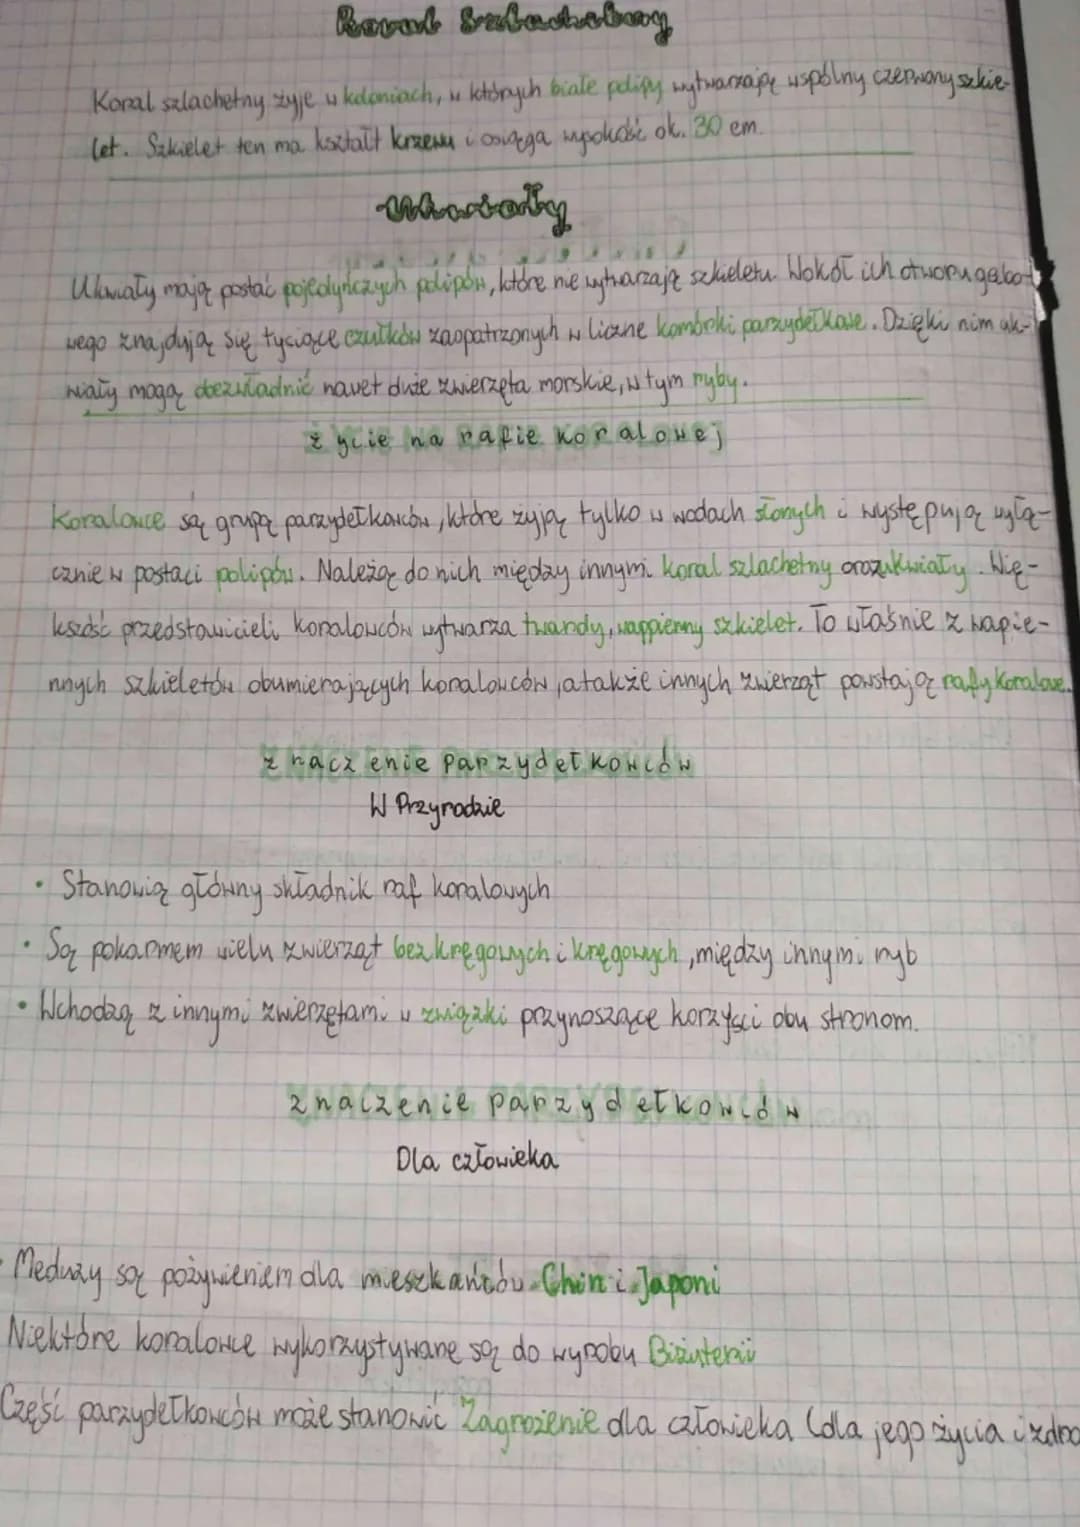 Koral Szlachetny
Koral szlachetny żyje w koloniach, w których białe polipy wytwarzają wspólny czerwony szkie-
let. Szkielet ten ma kształt krzewu i osiąga wysokość ok. 30 cm.
Ukwiały
Ukwiały mają postać pojedyńczych polipów, które nie wytwarzają szkieletu. Wokół ich otworu gębo-
wego znajdują się tysiące czułków zaopatrzonych w liczne komórki parzydełkowe. Dzięki nim uk-
wiały mogą obezwładnić nawet duże zwierzęta morskie, w tym ryby.
życie na rafie koralowej
Koralowce są grupą parzydełkowców, które żyją tylko w wodach słonych i występują wyłą-
cznie w postaci polipów. Należą do nich między innymi koral szlachetny oraz ukwiały. Wię-
kszość przedstawicieli koralowców wytwarza twardy, wappienny szkielet. To właśnie z wapie-
nnych szkieletów obumierających koralowców, a także innych zwierząt powstają rafy koralowe.
znaczenie parzydełkowców
W Przyrodzie
• Stanowią główny składnik raf koralowych
• Są pokarmem wielu zwierząt bezkręgowych i kręgowych, między innymi ryb
• Wchodzą z innymi zwierzętami w związki przynoszące korzyści obu stronom.
znaczenie parzydełkowców
Dla człowieka
• Meduzy są pożywieniem dla mieszkańców Chin i Japoni
Niektóre koralowce wykorzystywane są do wyrobu Biżuterii
Część parzydełkowców może stanowić Zagrożenie dla człowieka (dla jego życia i zdro